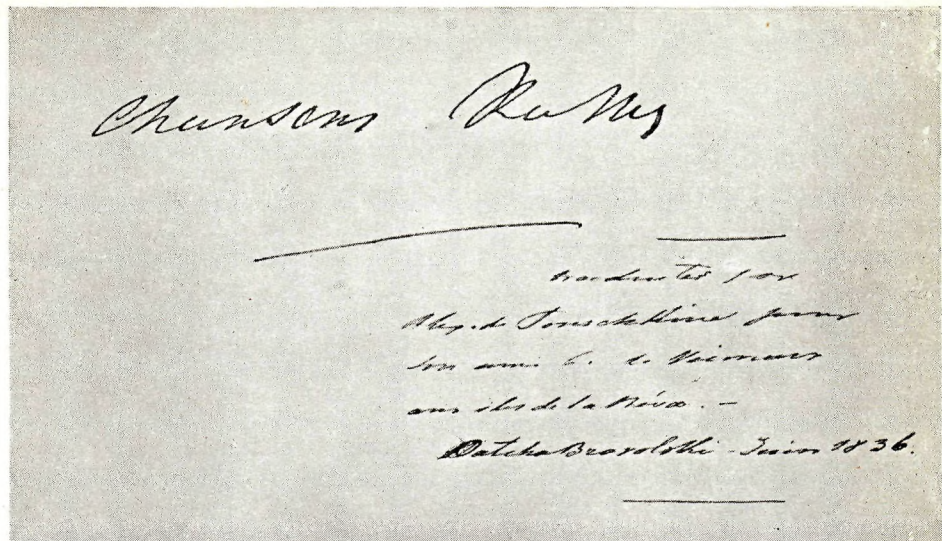 Chansons Russes
traduites par
Alex. de Pouschkine pour
son ami L. de Veimars
aux iles de la Néva. –
Datcha Brovolski - Juin 1836.